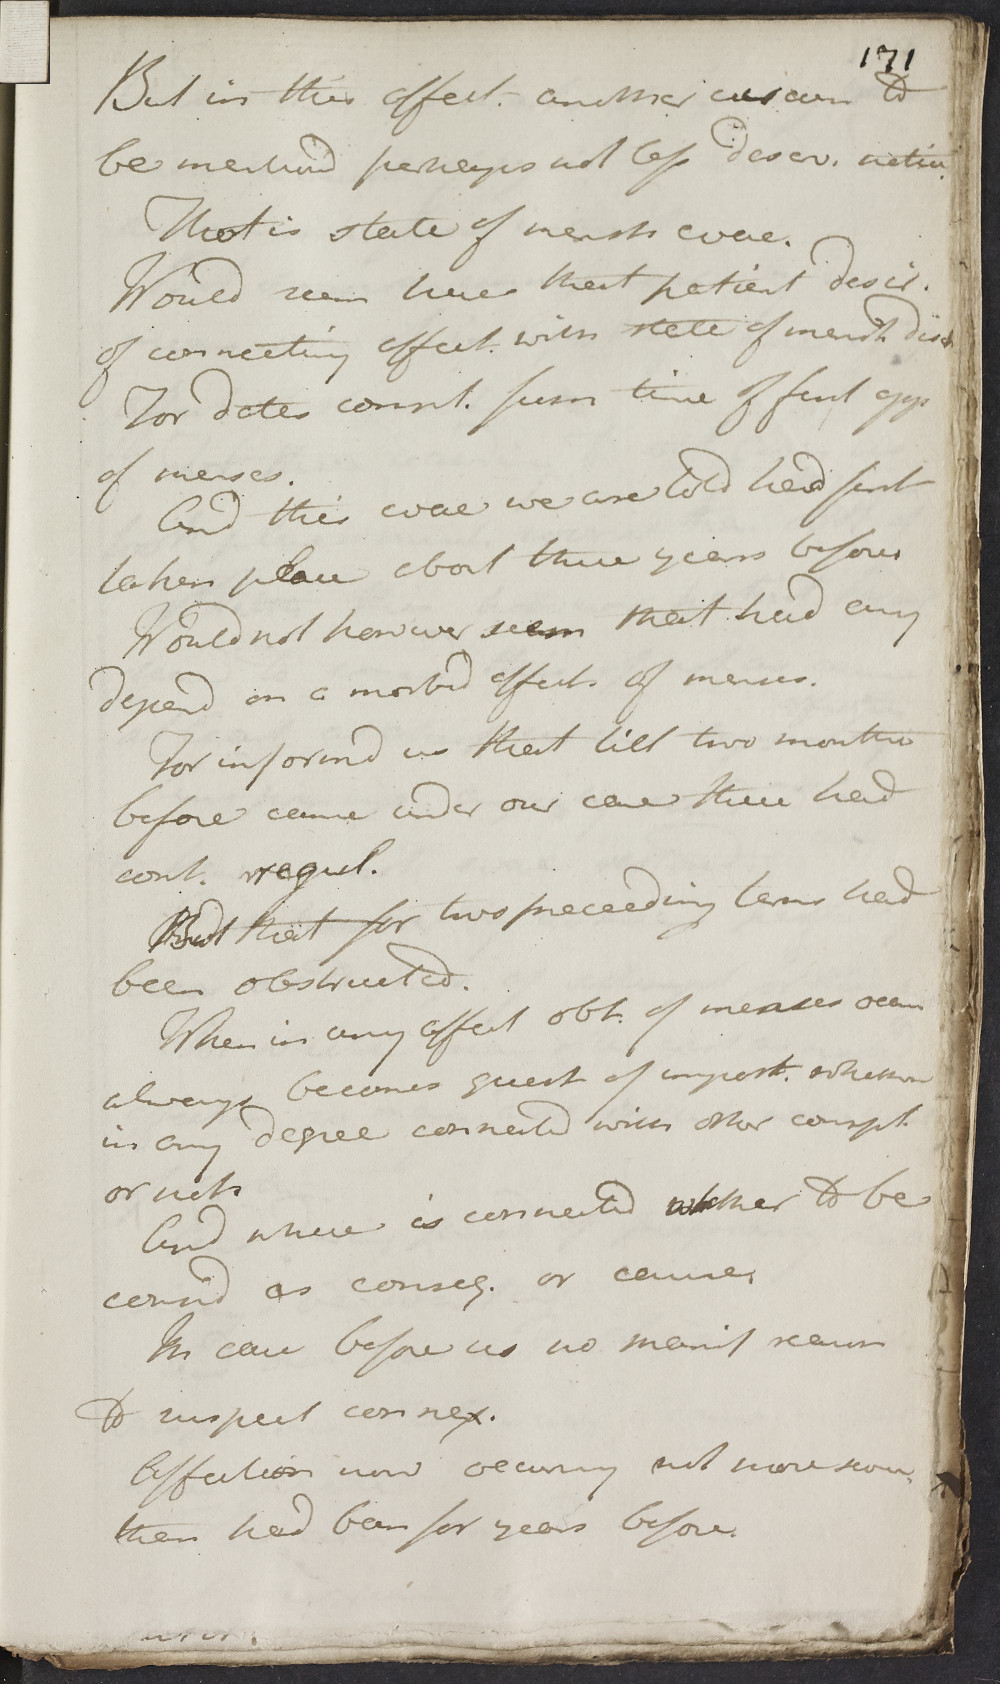 171
But in this affect. another circum to
be mentiond perhaps not less deserv. notice
That is state of mensts evac.
Would seem here that patient desir.
of connecting affect. with state of menst. disch
For dates commt. from time of first app
of menses.
And this evac we are told had first
taken place about three years before
Would not however seem that had any
depend on a morbid affects of menses.
For informd us that till two months
before came under our care these had
cont. regul.
But that for two preceeding terms had
been obstructed.
When in any affect obst. of menses occur
always becomes quest of import. whether
in any degree connected with other compl.
or not
And where is connected whether to be
consid as conseq. or cause.
In case before us no manif reason
to suspect connex.
Affection now occuring not more sev.
then had been for years before.